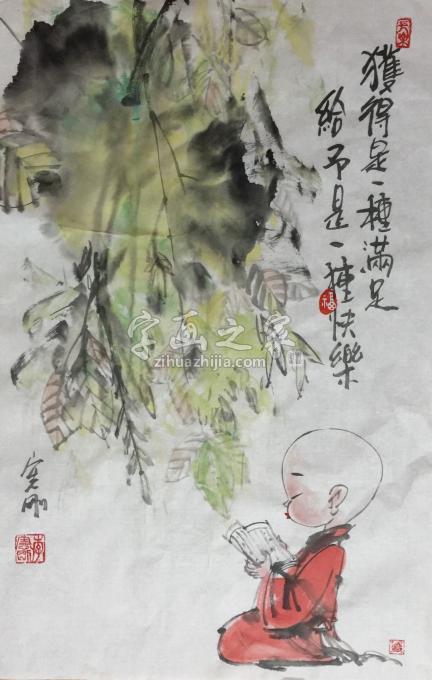 獲得是一種滿足
給予是一種快樂
福
字画之家
zihuazhijia.com